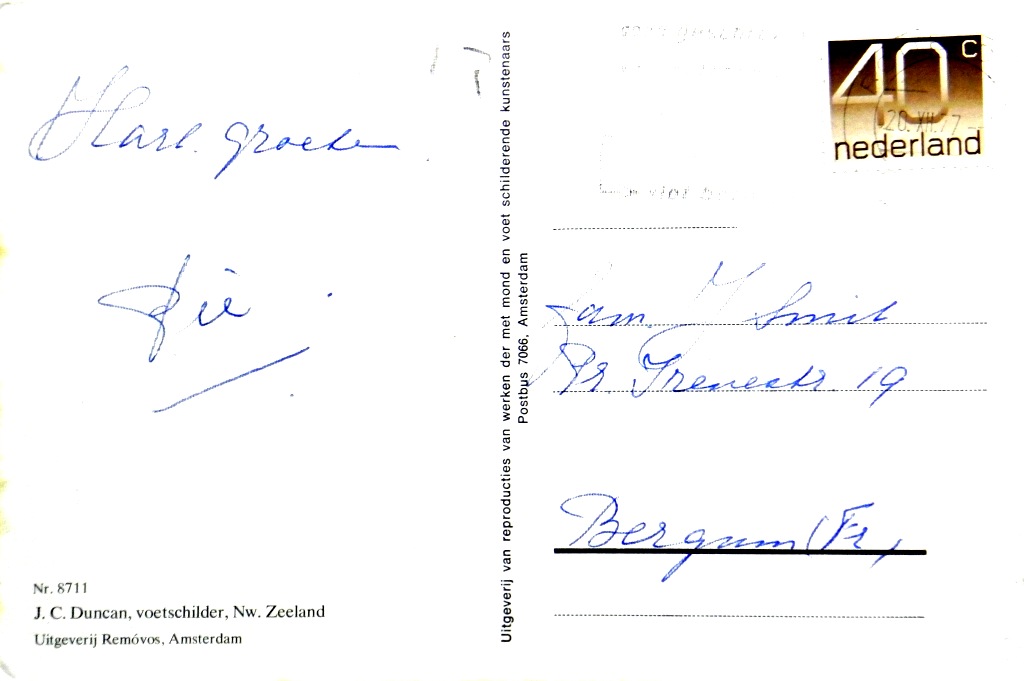 Hart. groeten
Rie
Nr. 8711
J. C. Duncan, voetschilder, Nw. Zeeland
Uitgeverij Removós, Amsterdam
Uitgeverij van reproducties van werken der met mond en voet schilderende kunstenaars
Postbus 7066, Amsterdam
40 c
nederland
20.XII.77
Fam. J Smit
Pr. Irenestr 19
Bergum (Fr)